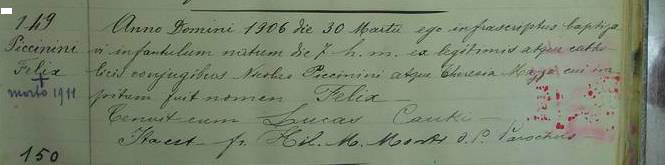 149
Piccinini
Felix
morto 1911
Anno Domini 1906 die 30 Martii ego infrascriptus baptiza
vi infantulum natum die 7 h. m. ex legitimis atque catho
licis conjugibus Nicolao Piccinini atque Theresia Mazza cui im
positum fuit nomen Felix
Tenuit eum Lucas
Ita est fr. Hil. M. Parochus
150